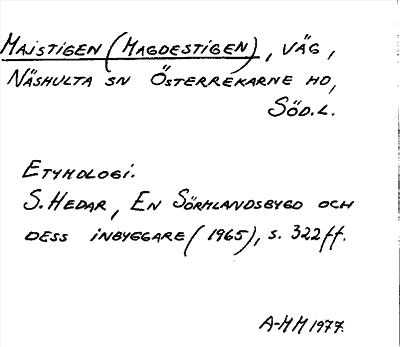 MAJSTIGEN (MAGDESTIGEN), VÄG,
NÄSHULTA SN ÖSTERREKARNE HD,
SÖD.L.
ETYMOLOGI.
S. HEDAR, EN SÖRMLANDSBYGD OCH
DESS INBYGGARE (1965), S. 322 ff.
A-MM 1977.